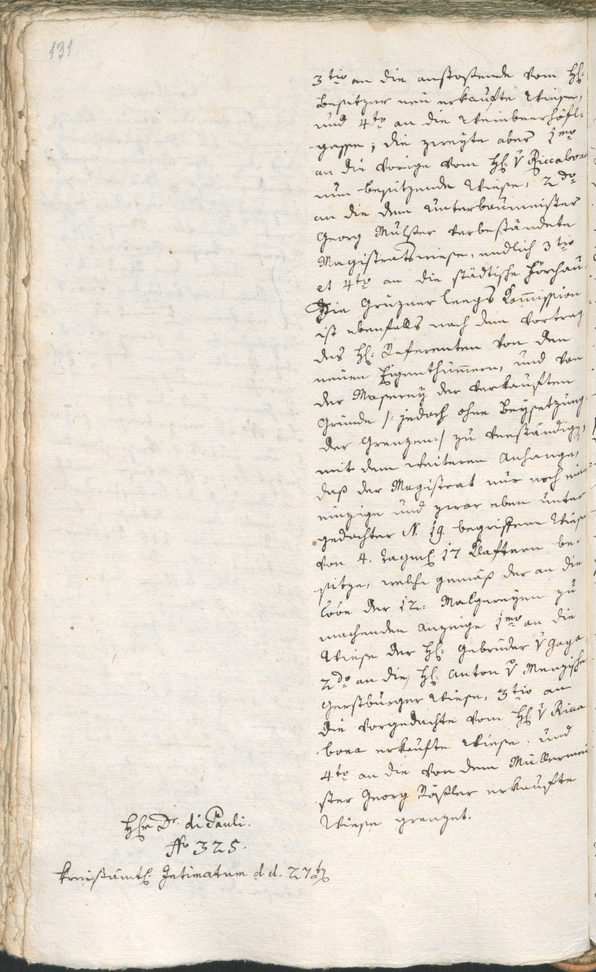 131
3tio an die anstossende vom H:
Besitzer neu erkaufte Wiese,
und 4to an die Weinbeerhöfl-
gasse; die zweyte aber 1mo
an die vorige vom H: v Riccabona
nun besitzende Wiese, 2do
an die dem Unterbaumeister
Georg Mulser verbeständete
Magistratswiese, endlich 3tio
et 4to an die städtische
Die Gränzner Commission
ist ebenfalls nach dem Vortrag
des H: Referenten von den
neuen Eigenthümern, und von
der Masserey der verkauften
Gründe /: jedoch ohne Beysetzung
der Grenzen :/ zu verständigen,
mit dem weiteren Anhange,
daß der Magistrat nur noch eine
einzige und zwar eben unter
gedachter N. 19 begriffene Wiese
von 4. Tagm: 17 Klaftern be-
sitze, welche gemäß der an die
Löbl der 12: Malgreyen zu
machenden Anzeige 1mo an die
Wiese der H: Gebrüder v Gasa
2do an die, H: Anton v Menzische
Gerstburger Wiese, 3tio an
die vorgedachte vom H: v Ricca
bona erkaufte Wiese, und
4to an die von dem Müllermei-
ster Georg Rößler erkaufte
Wiese grenzet.
Hr Dr. di Pauli.
No 325.
Kreisämtl: Intimatum d. d. 27t